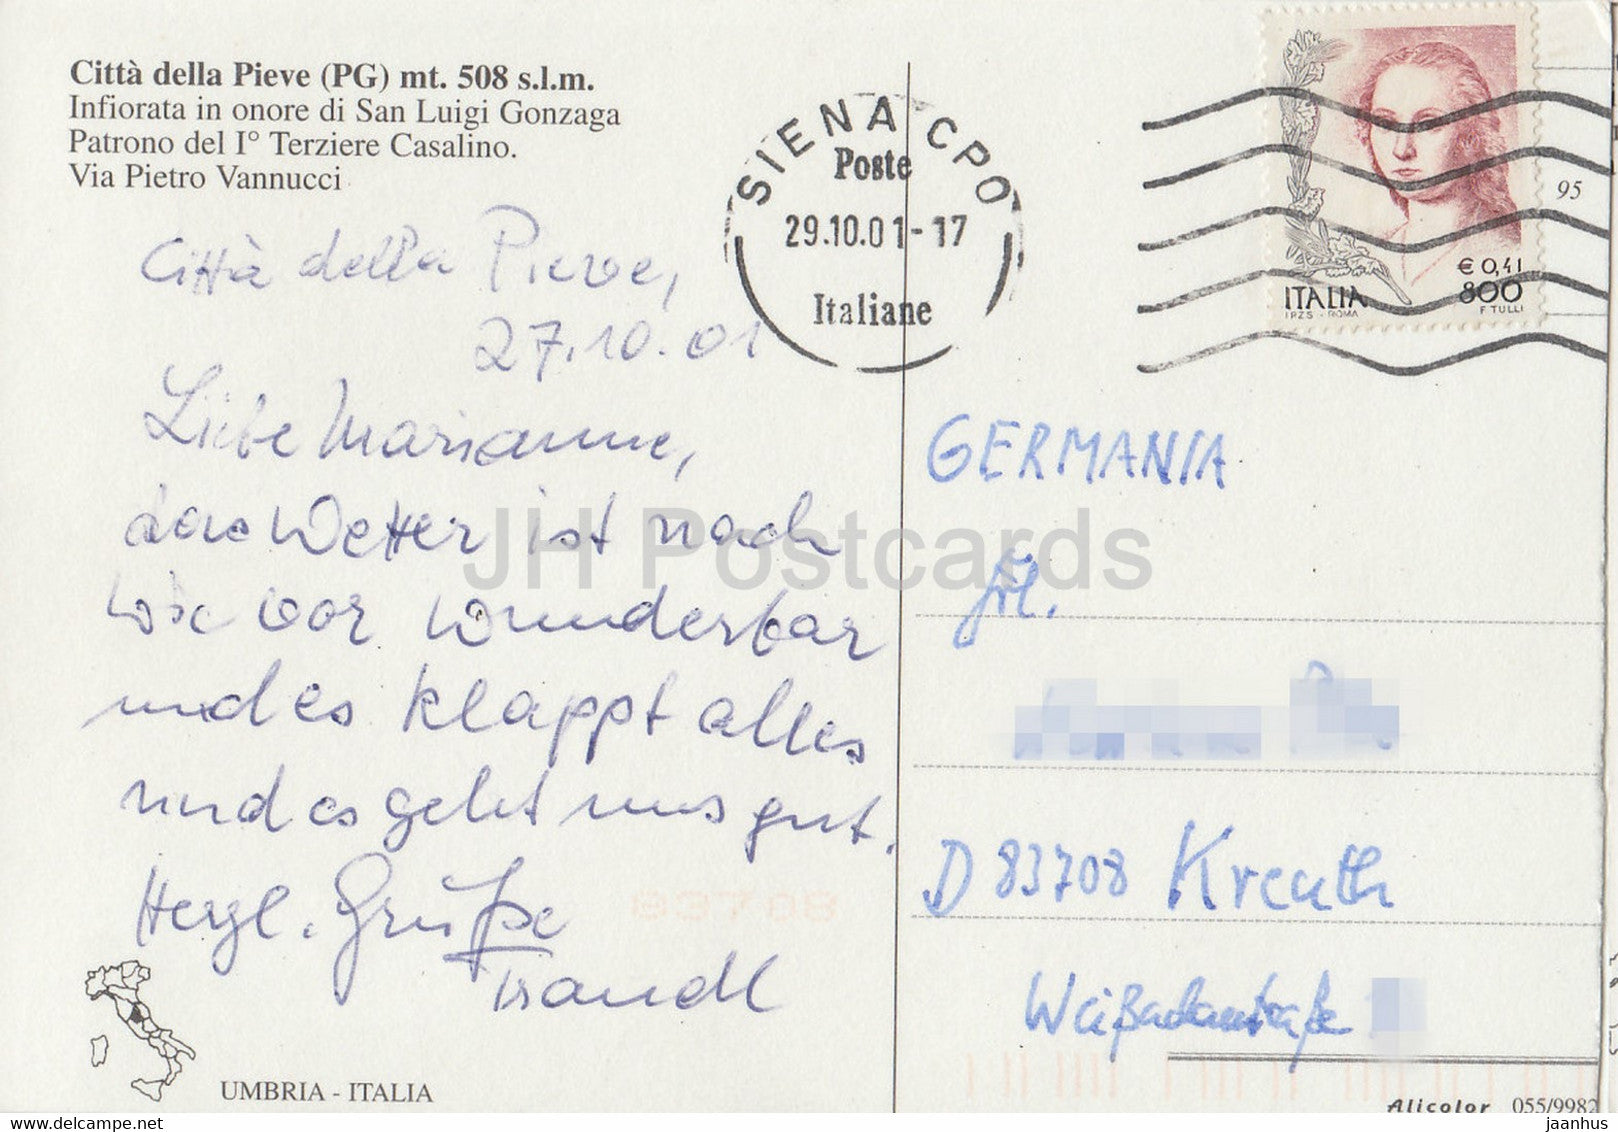 Città della Pieve (PG) mt. 508 s.l.m.
Infiorata in onore di San Luigi Gonzaga
Patrono del I° Terziere Casalino.
Via Pietro Vannucci
Città della Pieve,
27.10.01
Liebe Marianne,
das Wetter ist nach
wie vor wunderbar
und es klappt alles
und es geht uns gut.
Herzl. Grüße
UMBRIA - ITALIA
SIENA CPO
Poste
29.10.01-17
Italiane
95
€ 0,41
ITALIA 800
I.P.Z.S. - ROMA F. TULLI
GERMANIA
Frl.
D 83708 Kreuth
83708
Alicolor 055/9982
JH Postcards
www.delcampe.net
jaanhus